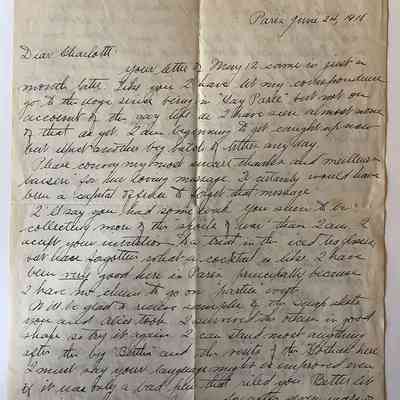 Paris June 24, 1918
Dear Charlotte
Your letter of May 12 came in just a
month later. Like you I have let my correspondence
go to the dogs since being in "Gay Paree" but not on
account of the gay life as I have seen almost none
of that as yet. I am beginning to get caught up now
but expect another big batch of letters any day.
Please convey my most sincere thanks and
baisers" for her loving message. It certainly would have
been a capital offense to forget that message
I'll say you had some luck. You seem to be
collecting more of the spoils of war than I am. I
accept your invitation to a treat in the iced tea glasses
but have forgotten what a cocktail is like. I have
been very good here in Paris principally because
I have no to go on "parties" with.
Will be glad to receive samples of the snap shots
you and Alice took. I survived the others in good
shape so try it again. I can stand most anything
after the big "Bertha" and the visits of the Gothas here.
I must say your language might be improved even
if it was only a bad pen that riled you. Better let